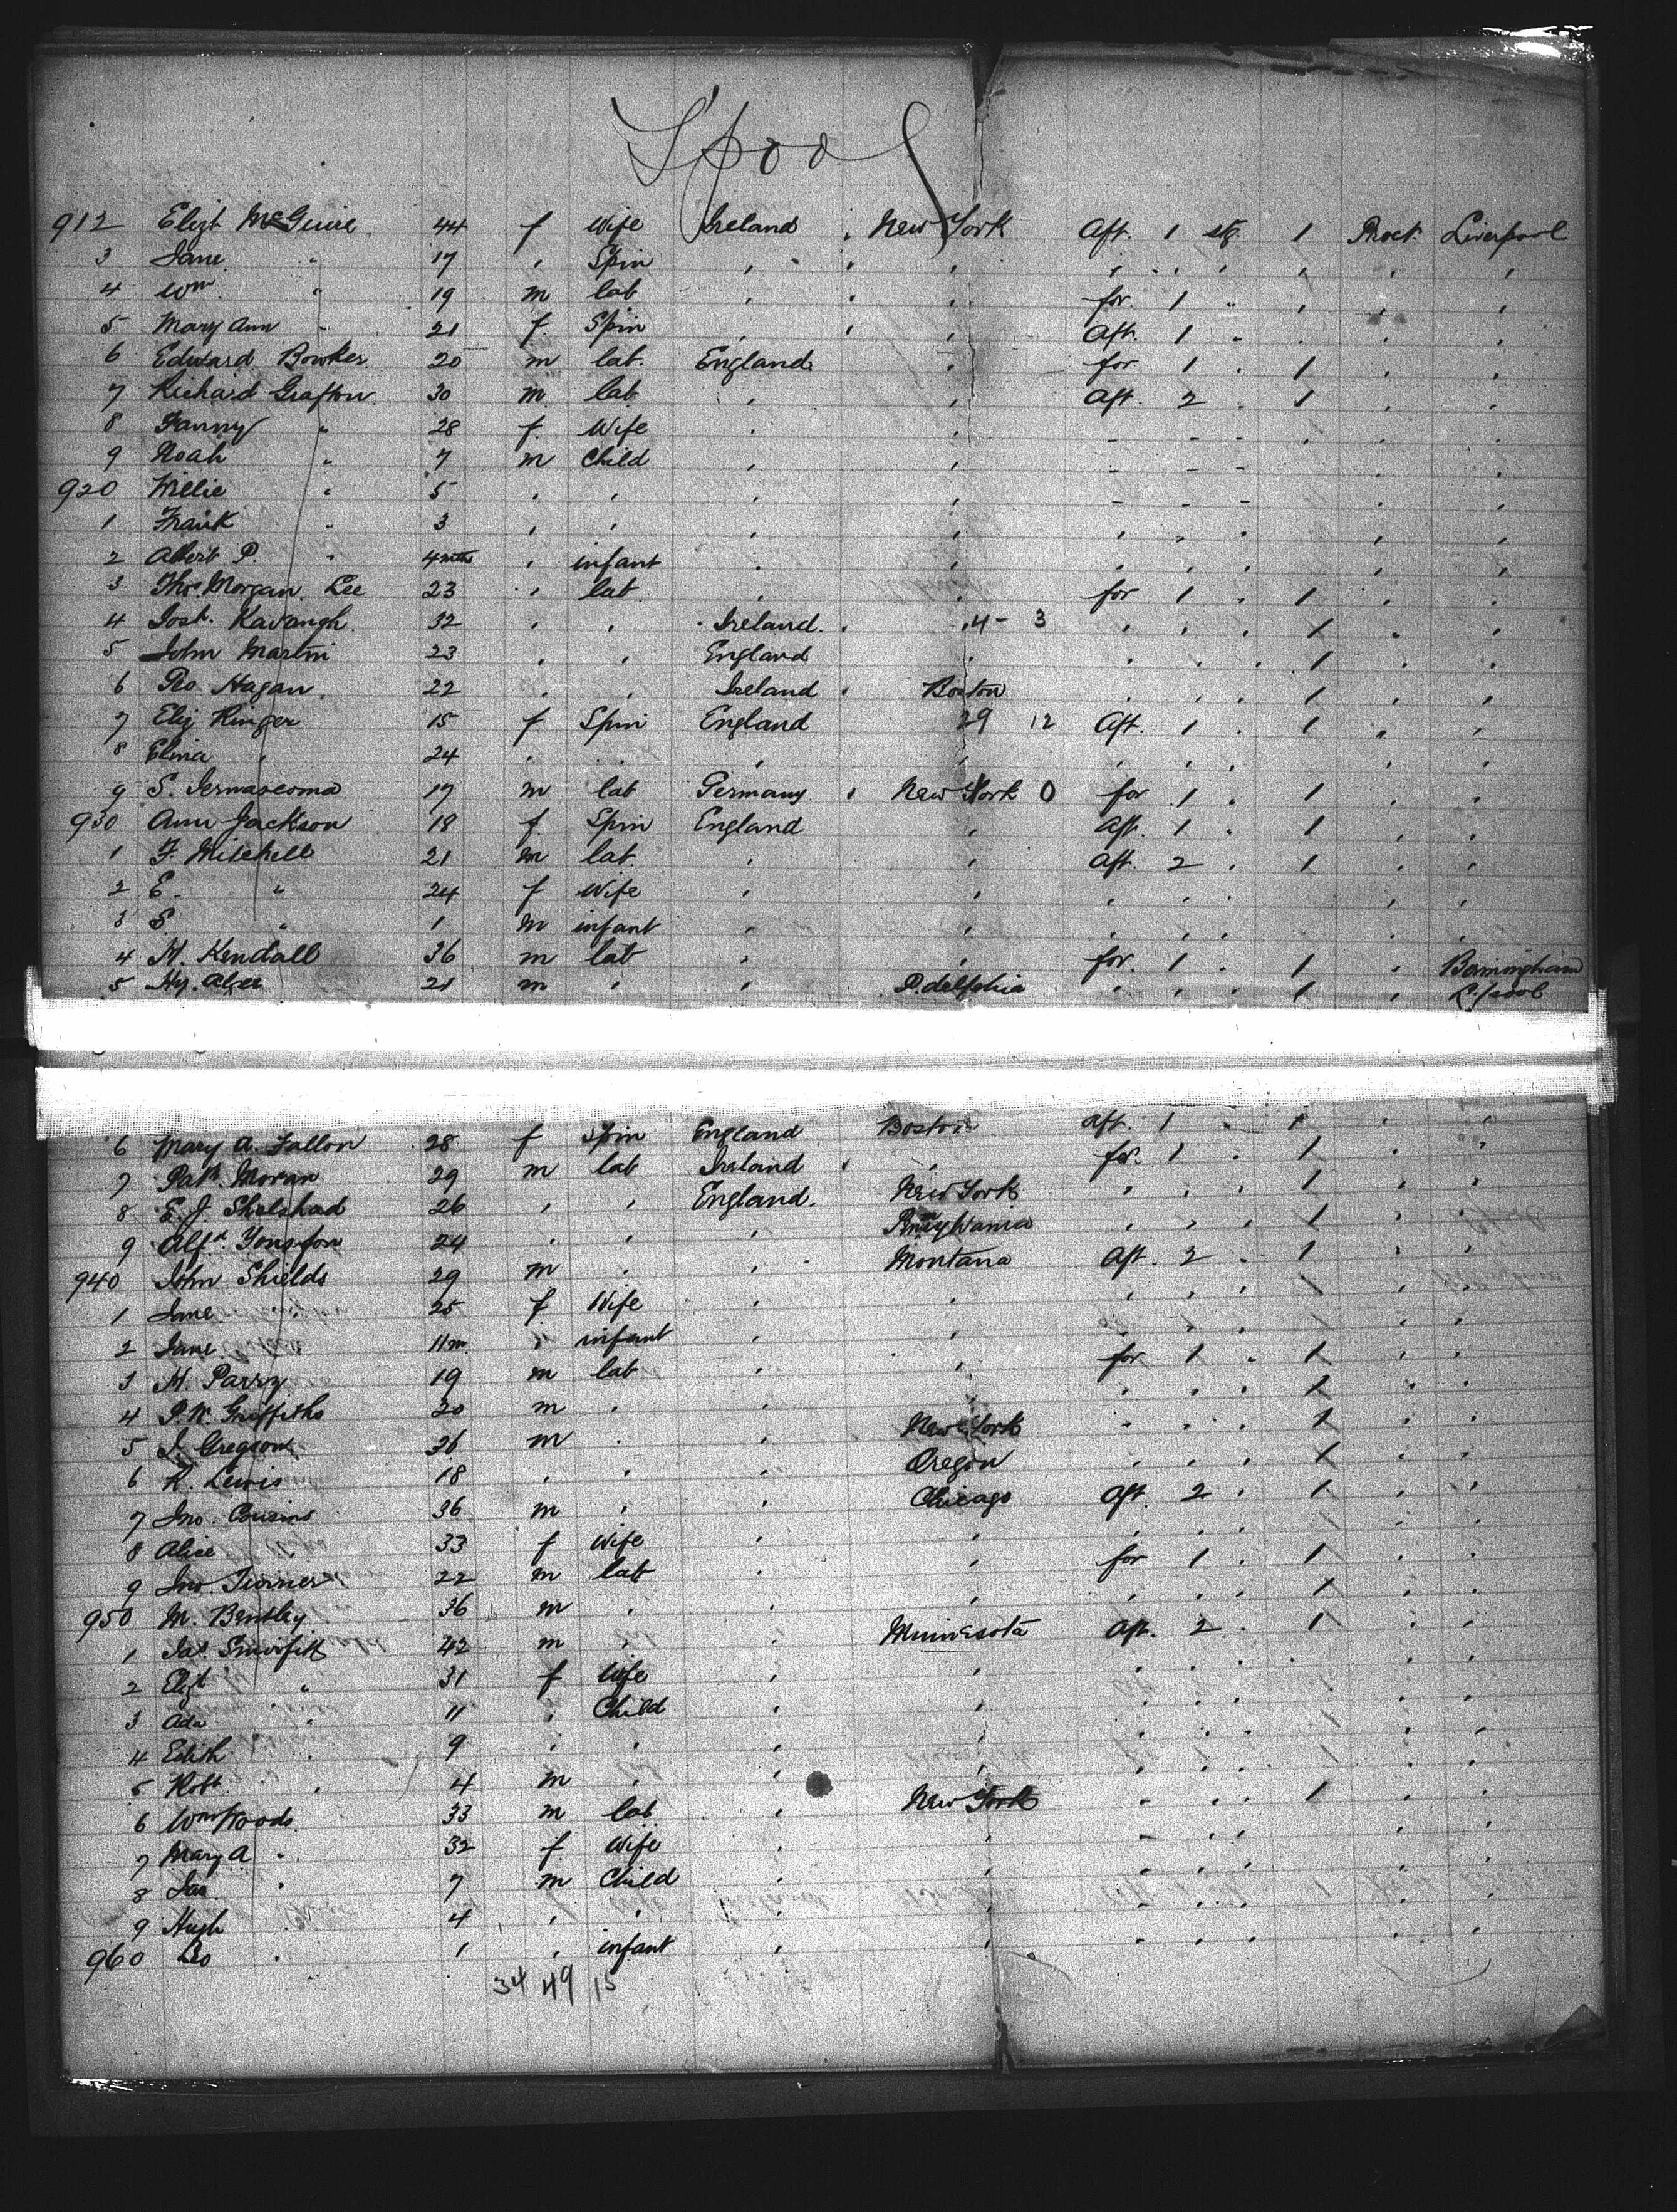 S'pool
912 Elizt McGuire 44 f Wife Ireland New York Aft. 1 stg. 1 Proct. Liverpool
3 Jane " 17 , Spin , , , , , , , ,
4 Wm " 19 m lab , , for. 1 " , , ,
5 Mary Ann " 21 f Spin , , Aft. 1 " , , ,
6 Edward Bowker 20 m lab. England , for 1 . 1 , ,
7 Richard Grafton 30 m lab , , Aft. 2 . 1 , ,
8 Fanny " 28 f. Wife , , - - - , ,
9 Noah " 7 m Child , , - - - , ,
920 Willie " 5 , , , , - - - , ,
1 Frank " 3 , , , , , , , , ,
2 Albert P. " 4mths , infant , , , , , , ,
3 Thos. Morgan Lee 23 , lab , , for 1 , 1 , ,
4 Josh. Kavangh 32 , , Ireland. 4 - 3 , , , 1 , ,
5 John Martin 23 , , England , , , , 1 , ,
6 Geo Hagan 22 , , Ireland Boston , , , 1 , ,
7 Eliz Ringer 15 f Spin England 29 12 Aft. 1 . 1 " ,
8 Elina , 24 , , , , , , , , ,
9 S. 17 m lab Germany New York 0 for 1 . 1 , ,
930 Ann Jackson 18 f Spin England , Aft. 1 " 1 , ,
1 F. Mitchell 21 m lab. , , Aft. 2 . 1 , ,
2 E. " 24 f Wife , , , , , , ,
3 S. " 1 m infant , , , , , , ,
4 H. Kendall 36 m lab , , for. 1 . 1 , Birmingham
5 Hy. 21 m , , P.delphia , , , 1 , L.pool
6 Mary A. Fallon 28 f Spin England Boston Aft. 1 . 1 , ,
7 Patk Moran 29 m lab Ireland , for. 1 . 1 , ,
8 E. J. 26 , , England. New York , , , 1 , ,
9 Alfd. 24 , , , , , , 1 , ,
940 John Shields 29 m , , Montana Aft. 2 . 1 , ,
1 Jane " 25 f Wife , , , , , 1 , ,
2 Jane 11m , infant , , , , , , ,
3 H. Parry 19 m lab , , for 1 " 1 , ,
4 P. W. Griffiths 20 m , , , , , 1 , ,
5 J. Gregson 26 m , , New York , , , 1 , ,
6 R. Lewis 18 , , , Oregon , , , 1 , ,
7 Jno. Cousins 36 m , , Chicago Aft. 2 . 1 , ,
8 Alice 33 f Wife , , , , , , ,
9 Jno. Turner 22 m lab , , for 1 . 1 , ,
950 M. Bentley 36 m , , , , , , 1 , ,
1 Jas. 42 m , , Minnesota Aft. 2 . 1 , ,
2 Elizt " 31 f Wife , , , , , , ,
3 Ada " 11 , Child , , , , , , ,
4 Edith " 9 , , , , , , , , ,
5 Robt. , 4 m , , , , , , , ,
6 Wm Woods 33 m lab , New York , , , 1 , ,
7 Mary A " 32 f Wife , , - , , , ,
8 Jas " 7 m Child , , , , , , ,
9 Hugh . 4 , , , , , , , , ,
960 Leo . 1 , infant , , , , , , ,
34 49 15